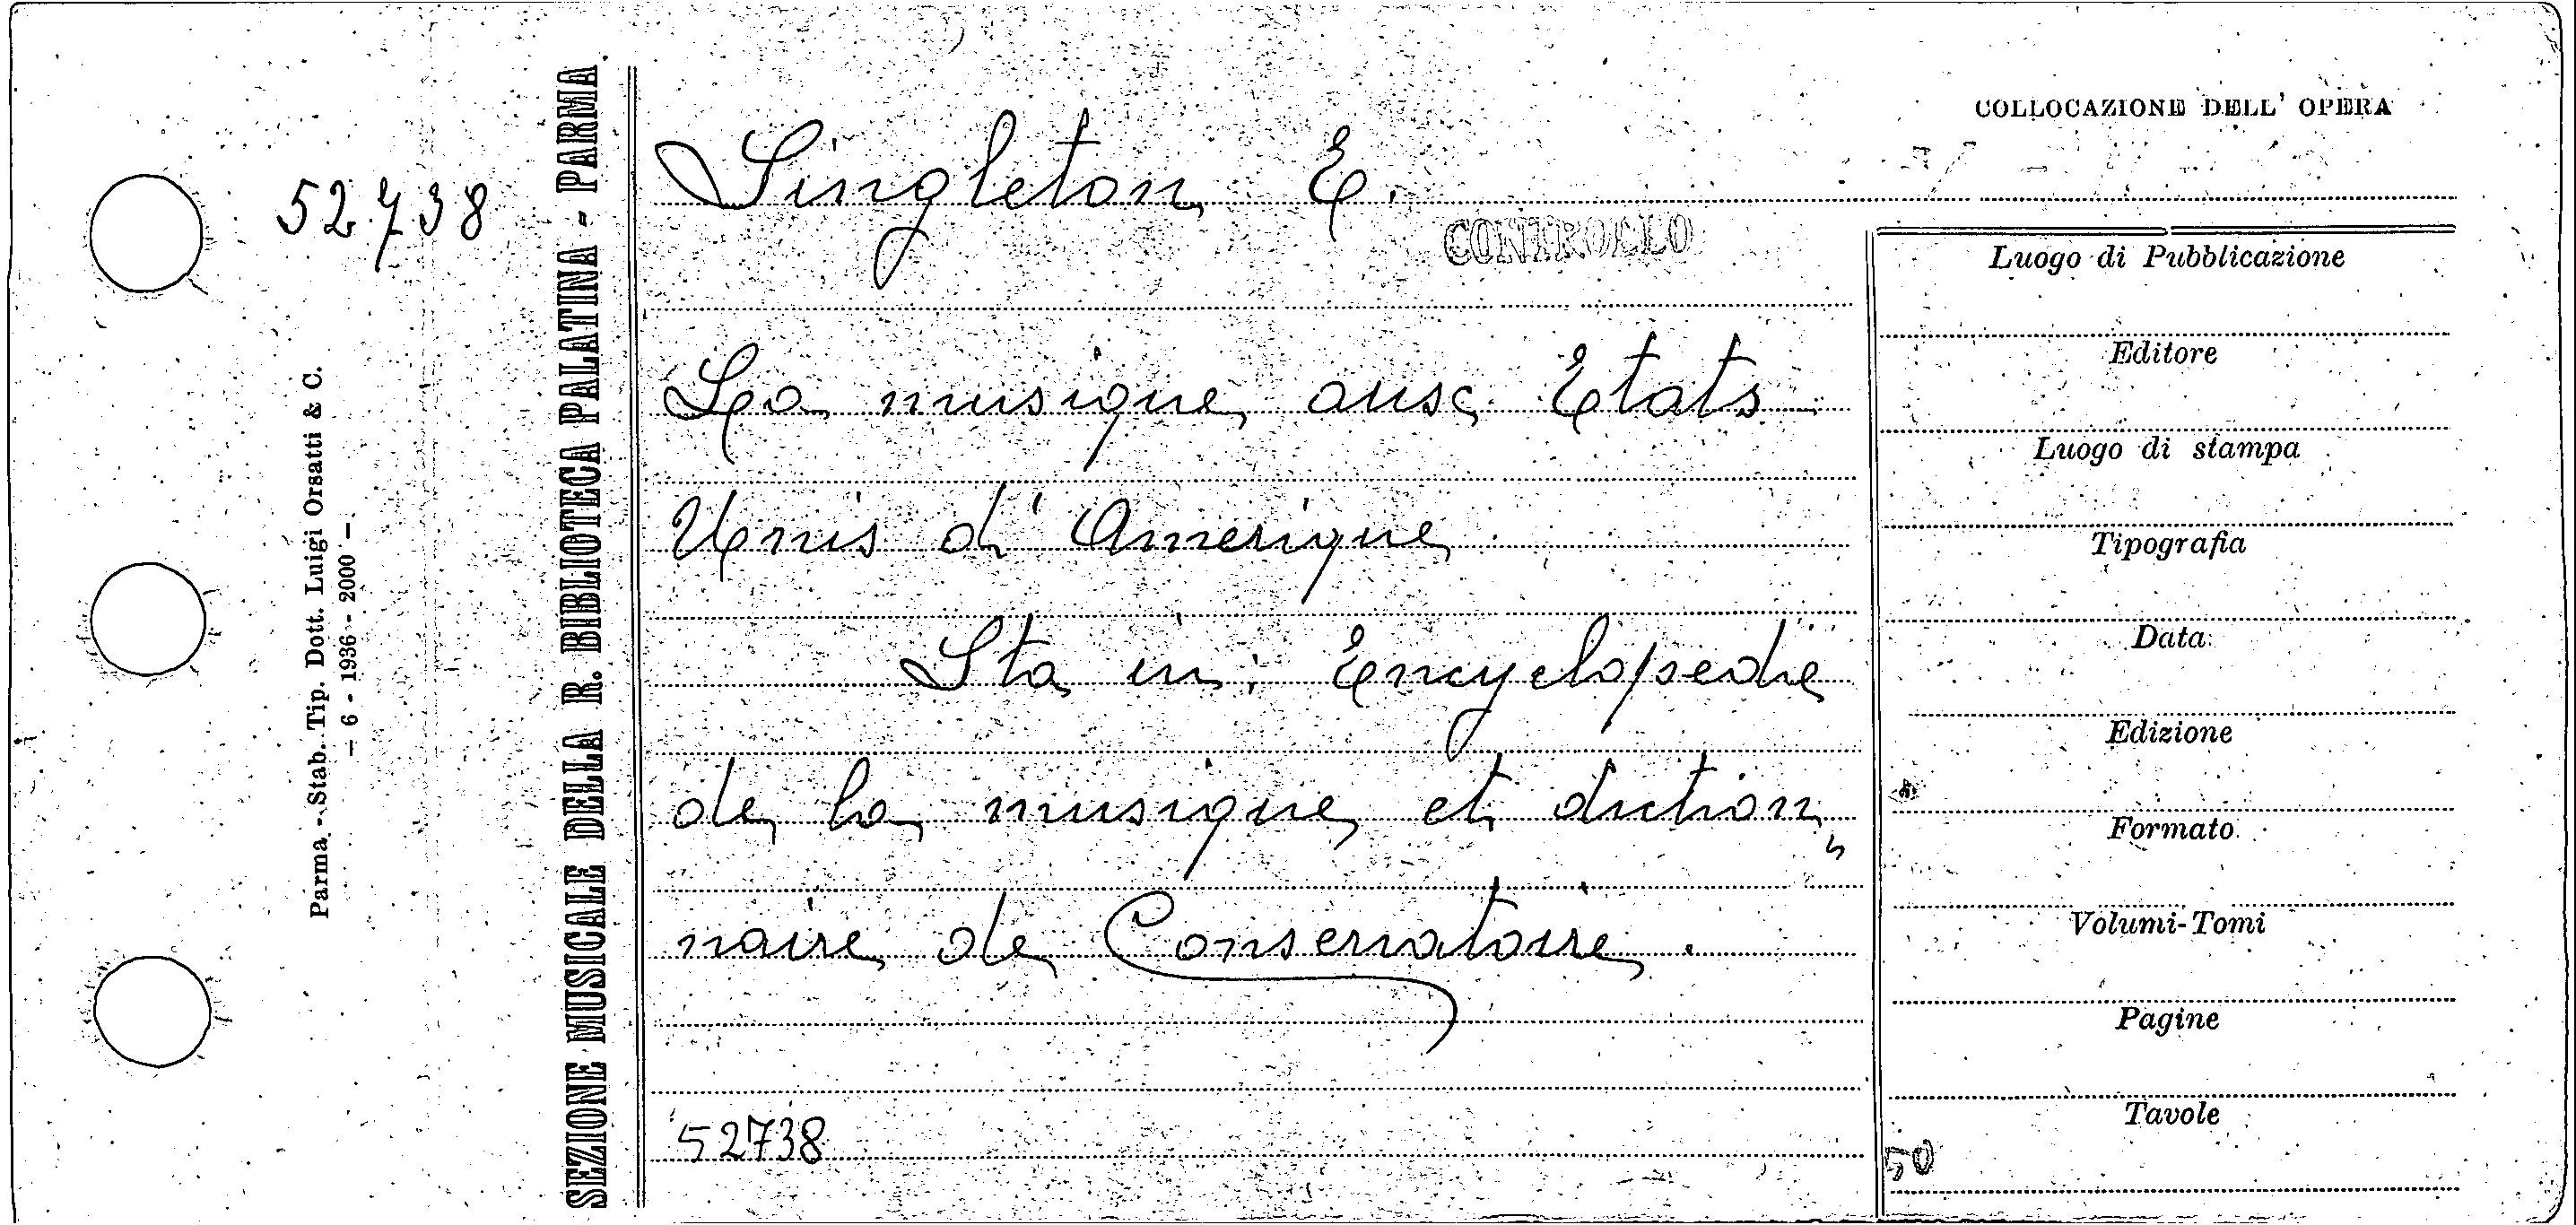 COLLOCAZIONE DELL' OPERA
52738
Singleton E.
CONTROLLO
La musique aux Etats
Unis d'Amerique
Sta in: Encyclopedie
de la musique et diction
naire de Conservatoire.
52738
Luogo di Pubblicazione
Editore
Luogo di stampa
Tipografia
Data
Edizione
Formato
Volumi-Tomi
Pagine
Tavole
50
SEZIONE MUSICALE DELLA R. BIBLIOTECA PALATINA - PARMA
Parma - Stab. Tip. Dott. Luigi Orsatti & C.
— 6 - 1936 - 2000 —